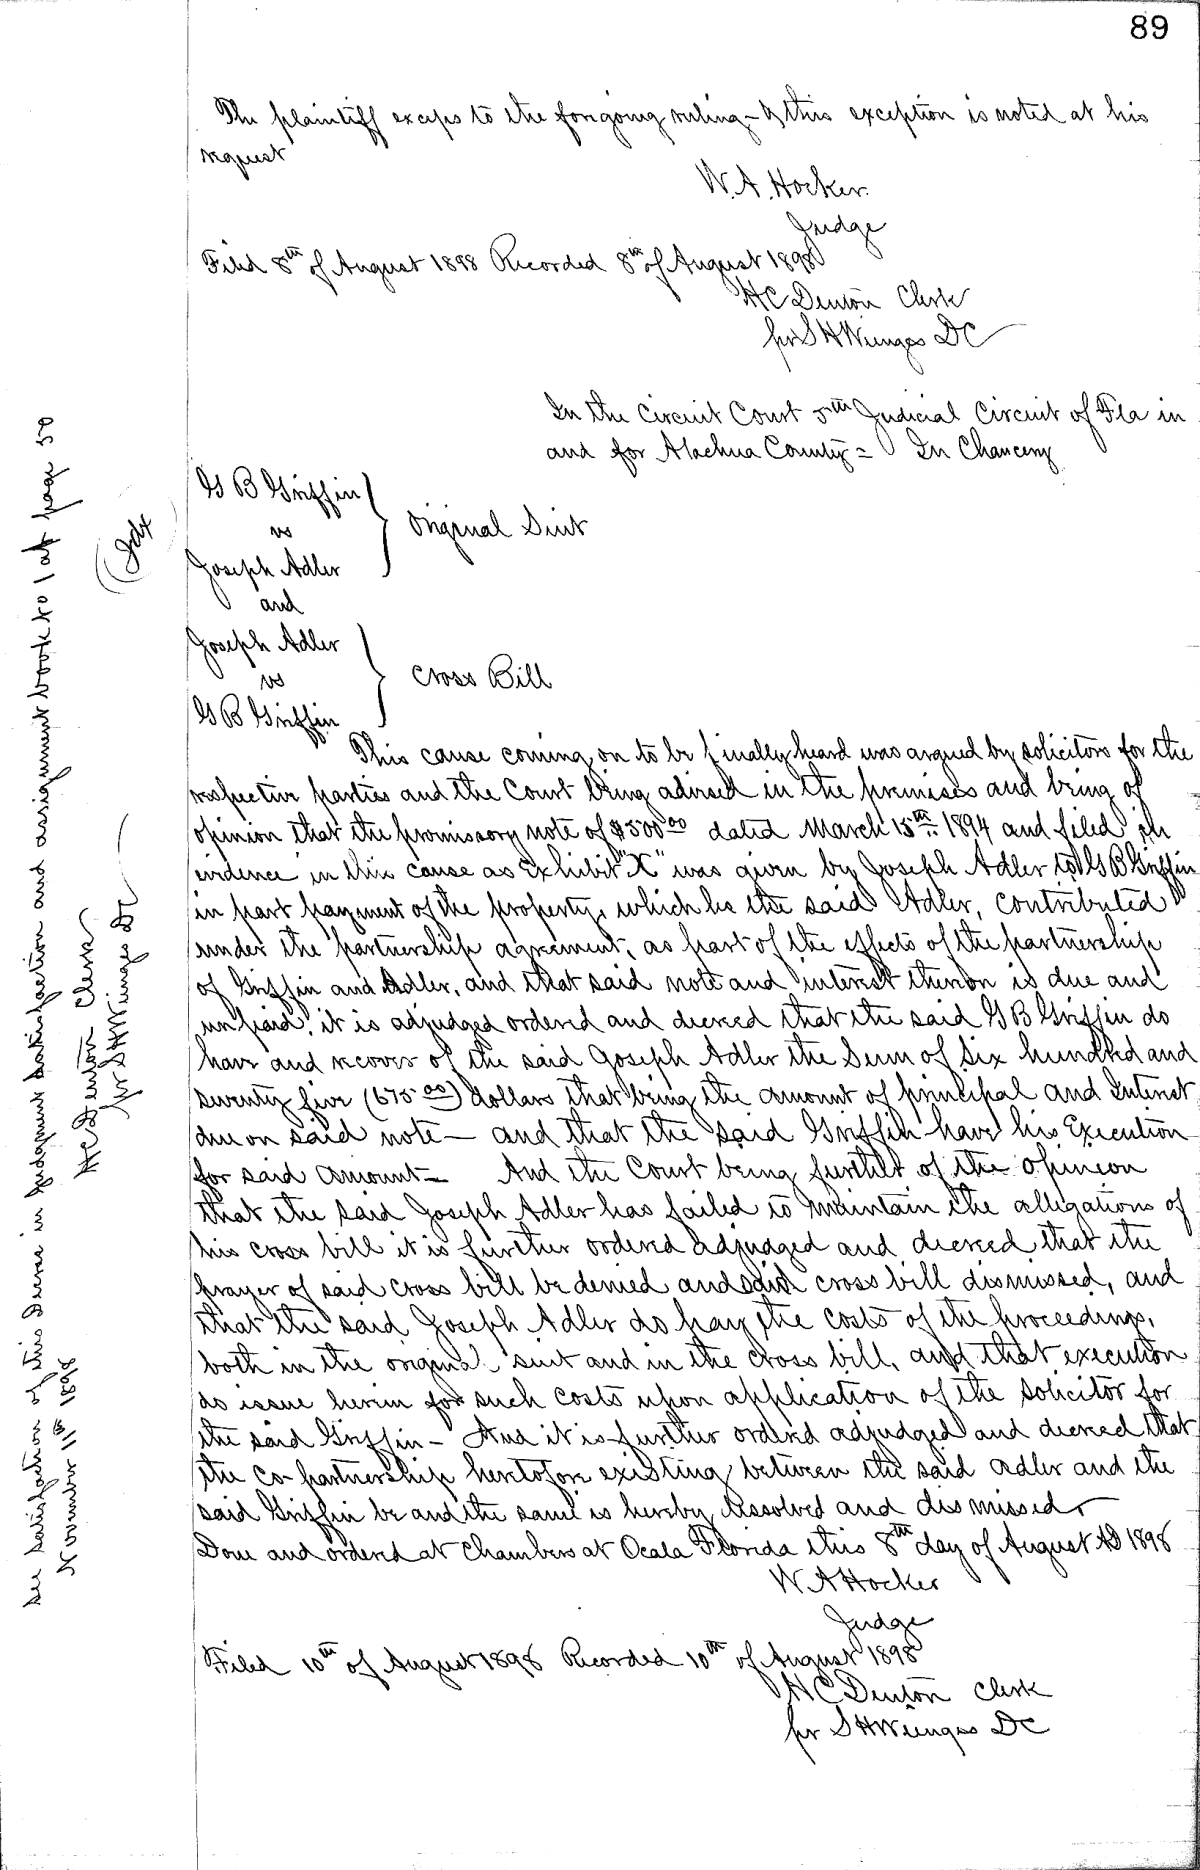 89
The plaintiff exceps to the foregoing ruling - & this exception is noted at his
request
W. A. Hocker
Judge
Filed 8th of August 1898 Recorded 8th of August 1898
H C Denton Clerk
per S H Wienges DC
In the Circuit Court 5th Judicial Circuit of Fla in
and for Alachua County = In Chancery
G B Griffin
vs
Joseph Adler
Original Suit
and
Joseph Adler
vs
G B Griffin
Cross Bill
This cause coming on to be finally heard was argued by solicitors for the
respective parties and the Court being advised in the premises and being of
opinion that the promissory note of $500.00 dated March 15th 1894 and filed in
evidence in this cause as Exhibit "X" was given by Joseph Adler to G B Griffin
in part payment of the property, which he the said Adler, contributed
under the partnership agreement, as part of the effects of the partnership
of Griffin and Adler, and that said note and interest thereon is due and
unpaid, it is adjudged ordered and decreed that the said G B Griffin do
have and recover of the said Joseph Adler the Sum of Six hundred and
seventy five (675.00) dollars that being the amount of principal and Interest
due on said note - and that the said Griffin have his Execution
for said amount - And the Court being further of the opinion
that the said Joseph Adler has failed to maintain the allegations of
his cross bill it is further ordered adjudged and decreed that the
prayer of said cross bill be denied and said cross bill dismissed, and
that the said Joseph Adler do pay the costs of the proceedings,
both in the original suit and in the cross bill, and that execution
do issue herein for such costs upon application of the solicitor for
the said Griffin - And it is further ordered adjudged and decreed that
the co-partnership heretofore existing between the said Adler and the
said Griffin be and the same is hereby dissolved and dismissed
Done and ordered at Chambers at Ocala Florida this 8th day of August AD 1898
W A Hocker
Judge
Filed 10th of August 1898 Recorded 10th of August 1898
H C Denton Clerk
per S H Wienges DC
See satisfaction of this Decree in Judgment satisfaction and assignment book No 1 at page 50
November 11th 1898
H C Denton Clerk
per S H Wienges DC